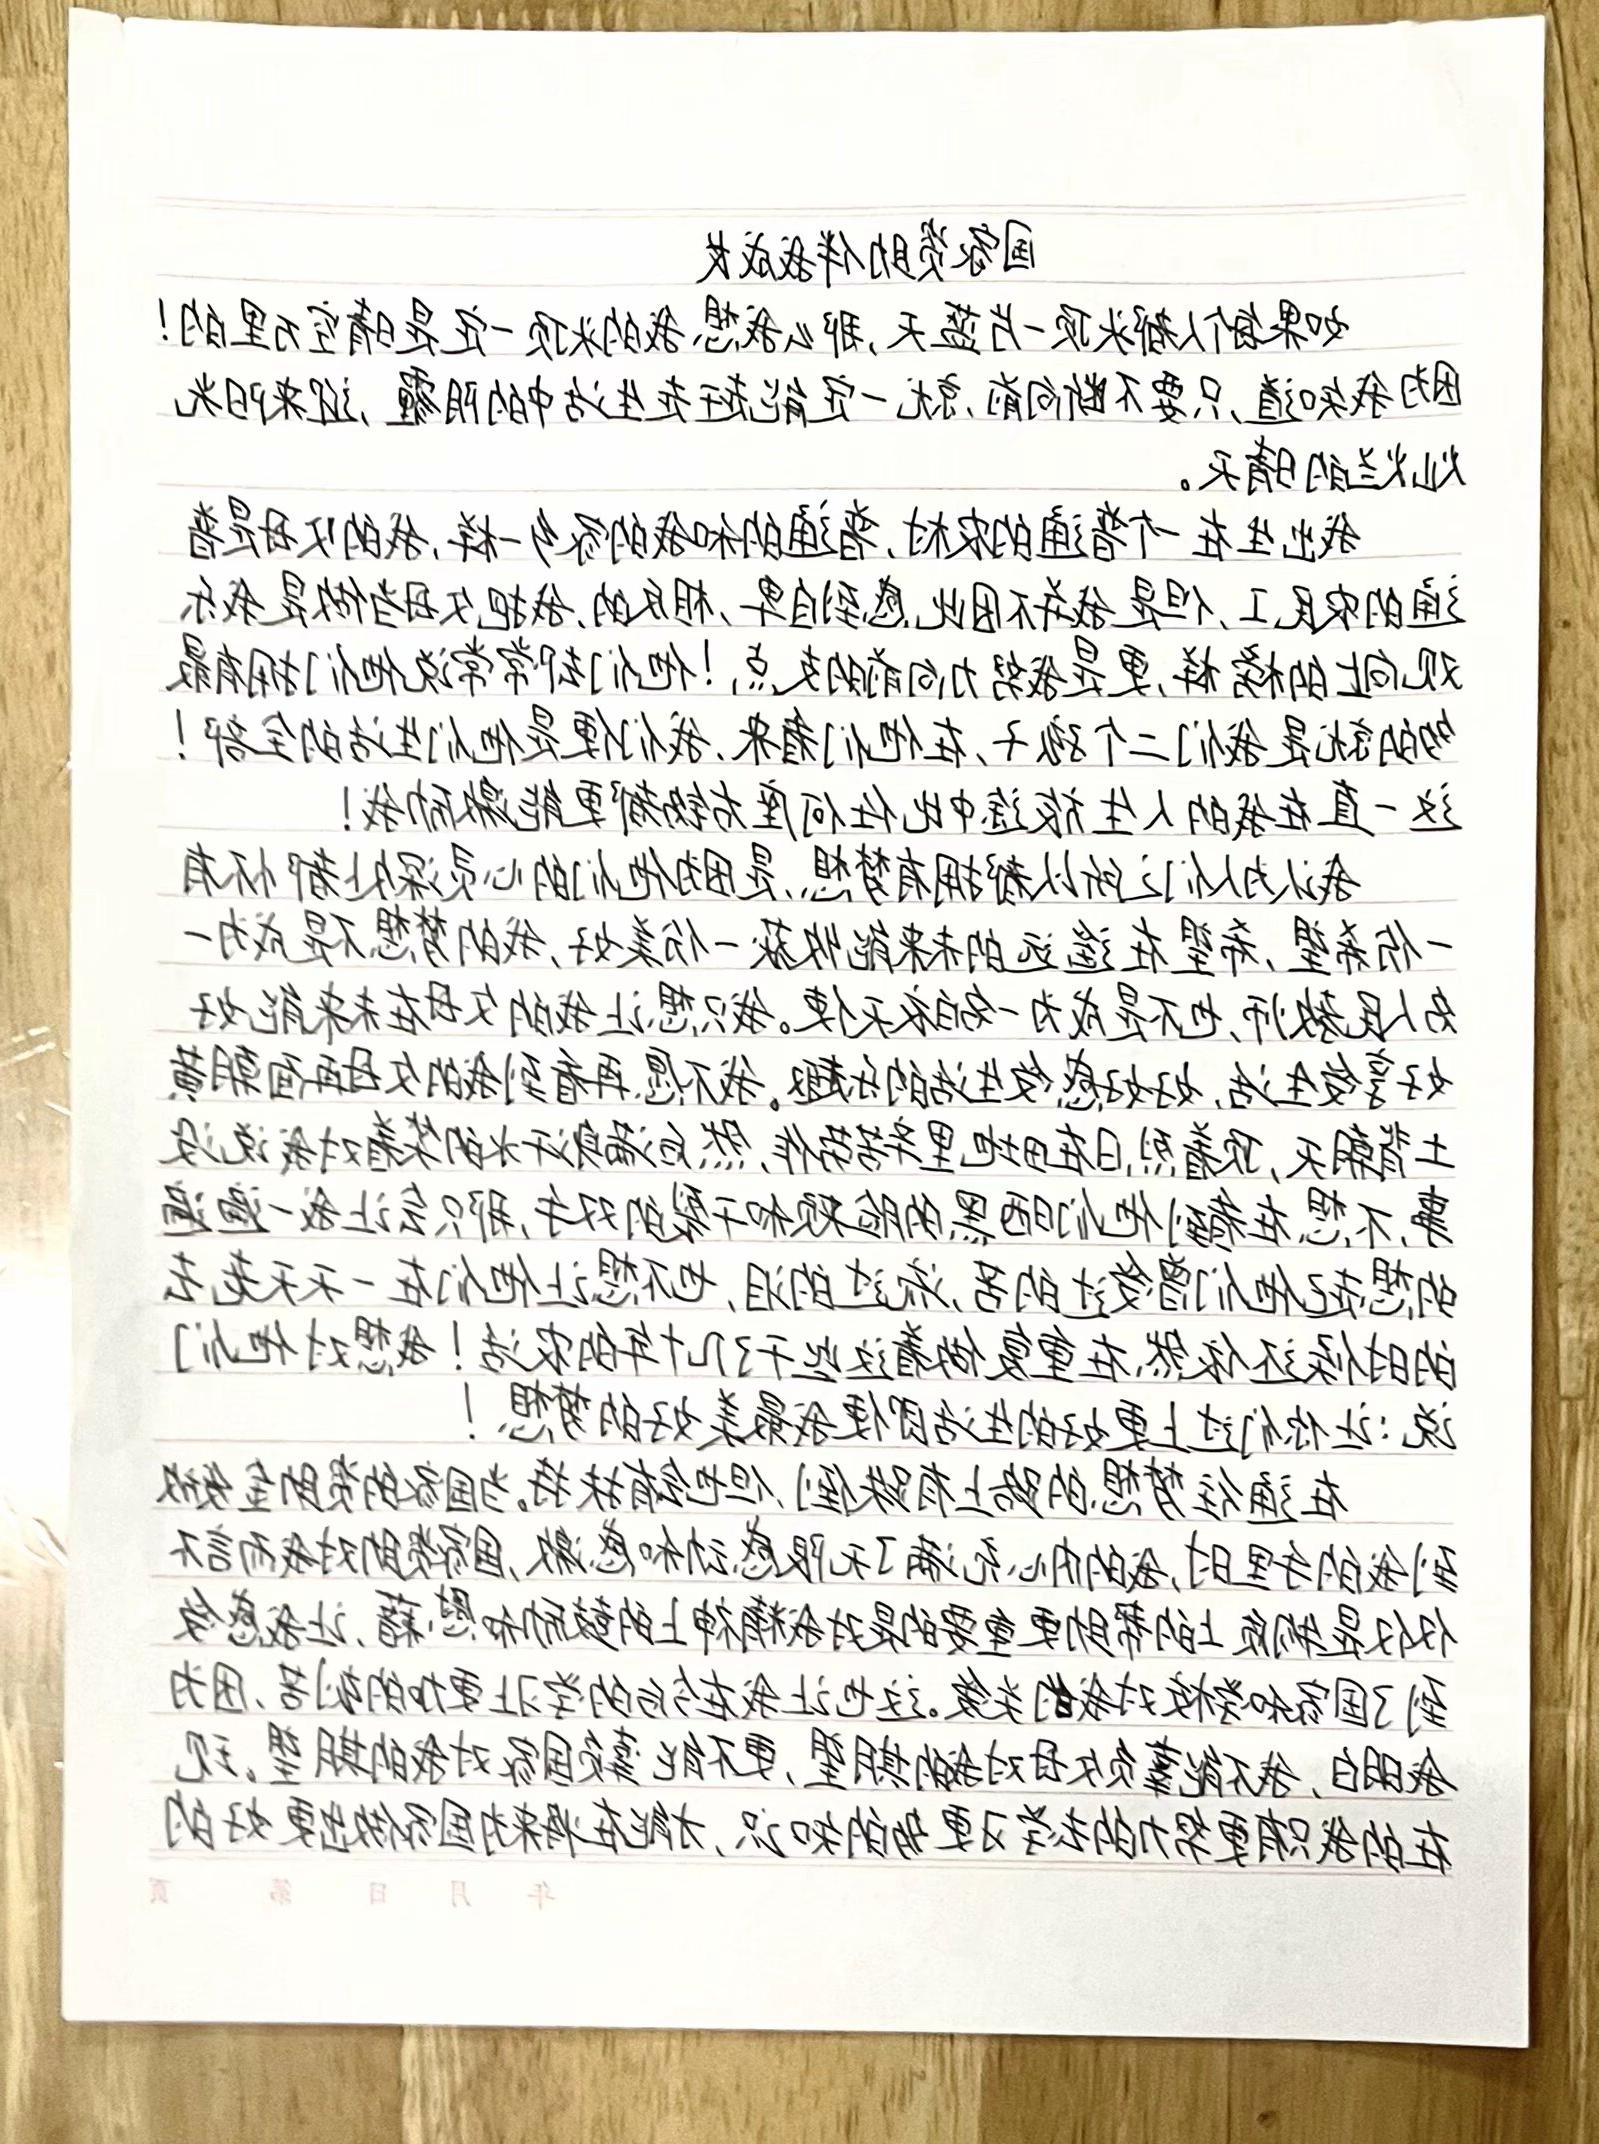 国家资助伴我成长
如果每个人都头顶一片蓝天,那么我想,我的头顶一定是晴空万里的!
因为我知道,只要不断向前,就一定能赶走生活中的阴霾,迎来阳光
灿烂的晴天。
我出生在一个普通的农村,普通的和我的家乡一样,我的父母是普
通的农民工,但是我并不因此感到自卑,相反的,我把父母当做是我乐
观向上的榜样,更是我努力向前的支点!他们却常常说他们拥有最
多的就是我们二个孩子,在他们看来,我们便是他们生活的全部!
这一直在我的人生旅途中比任何座右铭都更能激励我!
我认为人们之所以都拥有梦想,是因为他们的心灵深处都怀有
一份希望,希望在遥远的未来能收获一份美好,我的梦想不是成为一
名人民教师,也不是成为一名白衣天使。我只想让我的父母在未来能好
好享受生活,好好感受生活的乐趣。我不愿再看到我的父母再面朝黄
土背朝天,顶着烈日在田地里辛苦劳作,然后满身汗水的笑着对我说没
事,不想在看到他们晒黑的脸颊和干裂的双手,那只会让我一遍遍
的想起他们曾受过的苦,流过的泪,也不想让他们在一天天老去
的时候还依然在重复做着这些干了几十年的农活!我想对他们
说:让你们过上更好的生活即使我最美好的梦想!
在通往梦想的路上有跌倒,但也会有扶持。当国家的资助金发放
到我的手里时,我的内心充满了无限感动和感激,国家资助对我而言不
仅仅是物质上的帮助更重要的是对我精神上的鼓励和慰藉,让我感受
到了国家和学校对我的关爱。这也让我在今后的学习上更加的刻苦,因为
我明白,我不能辜负父母对我的期望,更不能辜负国家对我的期望。现
在的我只有更努力的去学习更多的知识,才能在将来为国家做出更好的
年 月 日 第 页